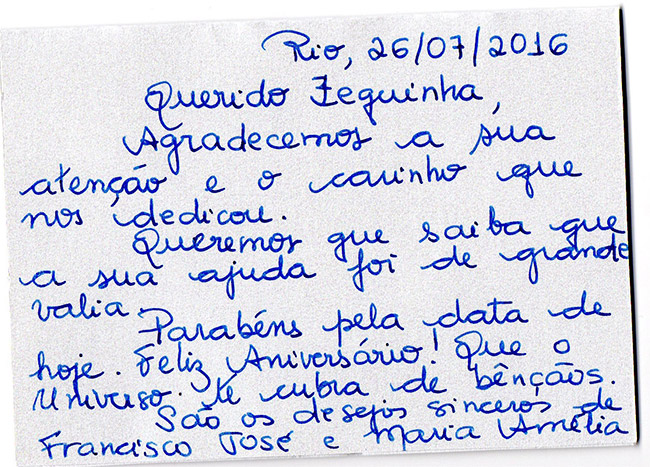 Rio, 26/07/2016
Querido Zeguinha,
Agradecemos a sua
atenção e o carinho que
nos dedicou.
Queremos que saiba que
a sua ajuda foi de grande
valia.
Parabéns pela data de
hoje. Feliz Aniversário! Que o
Universo te cubra de bênçãos.
São os desejos sinceros de
Francisco José e Maria Amélia